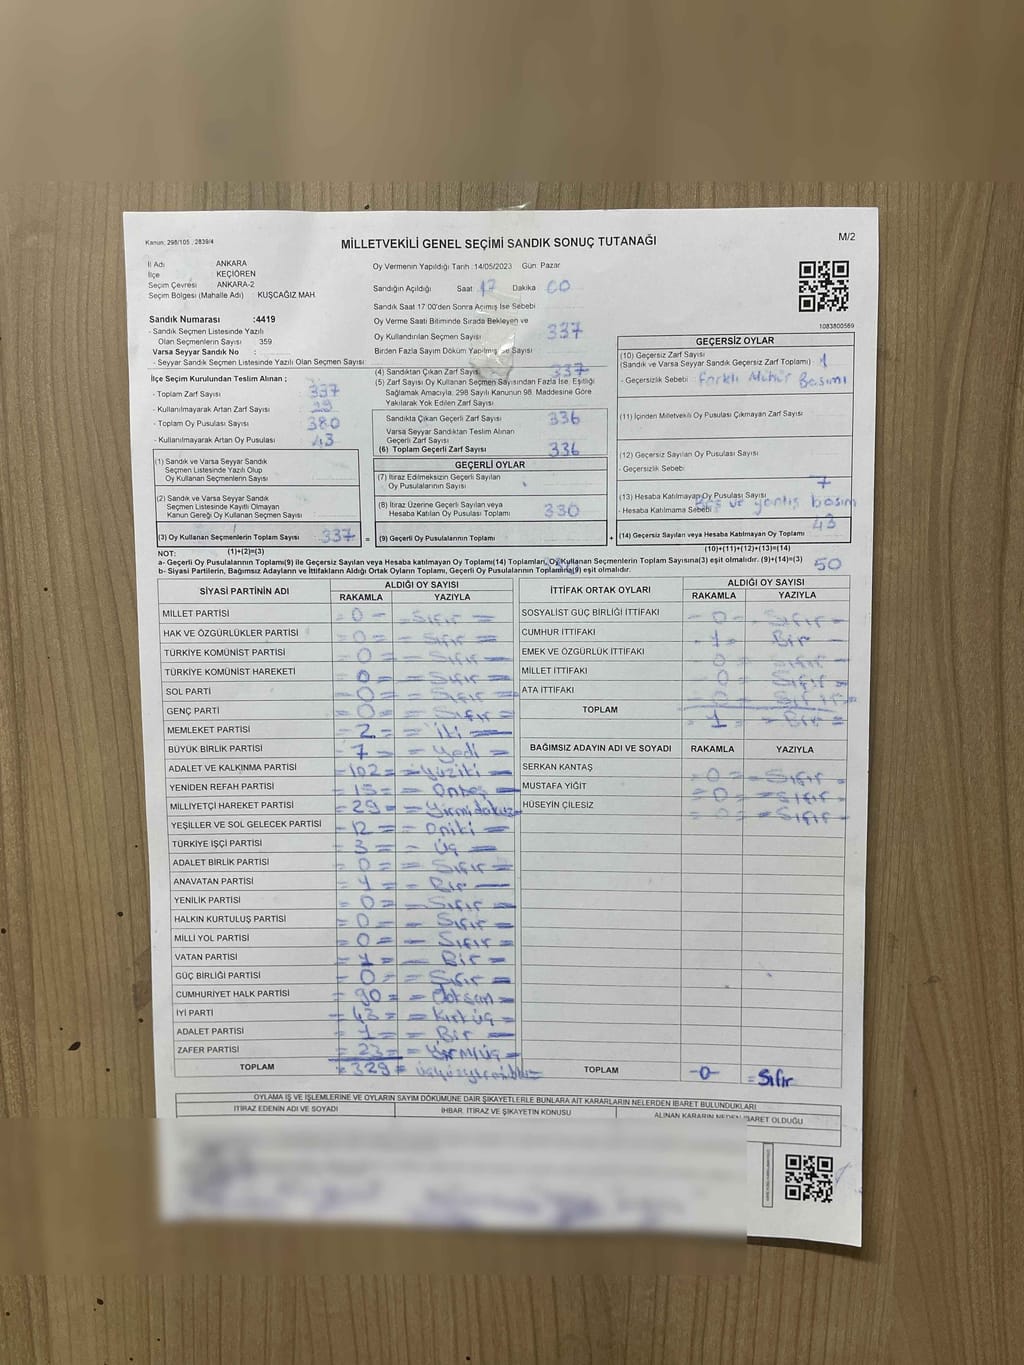 Kanun: 298/105 , 2839/4
MİLLETVEKİLİ GENEL SEÇİMİ SANDIK SONUÇ TUTANAĞI
M/2
İl Adı ANKARA
İlçe KEÇİÖREN
Seçim Çevresi ANKARA-2
Seçim Bölgesi (Mahalle Adı) KUŞCAĞIZ MAH
Sandık Numarası :4419
- Sandık Seçmen Listesinde Yazılı
Olan Seçmenlerin Sayısı 359
Varsa Seyyar Sandık No :
- Seyyar Sandık Seçmen Listesinde Yazılı Olan Seçmen Sayısı
İlçe Seçim Kurulundan Teslim Alınan ;
- Toplam Zarf Sayısı 337
- Kullanılmayarak Artan Zarf Sayısı 29
- Toplam Oy Pusulası Sayısı 380
- Kullanılmayarak Artan Oy Pusulası 43
(1) Sandık ve Varsa Seyyar Sandık
Seçmen Listesinde Yazılı Olup
Oy Kullanan Seçmenlerin Sayısı
(2) Sandık ve Varsa Seyyar Sandık
Seçmen Listesinde Kayıtlı Olmayan
Kanun Gereği Oy Kullanan Seçmen Sayısı
(3) Oy Kullanan Seçmenlerin Toplam Sayısı 337 =
(1)+(2)=(3)
Oy Vermenin Yapıldığı Tarih :14/05/2023 Gün: Pazar
Sandığın Açıldığı Saat 17 Dakika 00
Sandık Saat 17.00'den Sonra Açılmış İse Sebebi
Oy Verme Saati Bitiminde Sırada Bekleyen ve
Oy Kullandırılan Seçmen Sayısı 337
Birden Fazla Sayım Döküm Yapılmış ise Sayısı
(4) Sandıktan Çıkan Zarf Sayısı 337
(5) Zarf Sayısı Oy Kullanan Seçmen Sayısından Fazla İse, Eşitliği
Sağlamak Amacıyla; 298 Sayılı Kanunun 98. Maddesine Göre
Yakılarak Yok Edilen Zarf Sayısı.
Sandıkta Çıkan Geçerli Zarf Sayısı 336
Varsa Seyyar Sandıktan Teslim Alınan
Geçerli Zarf Sayısı
(6) Toplam Geçerli Zarf Sayısı 336
GEÇERLİ OYLAR
(7) İtiraz Edilmeksizin Geçerli Sayılan
Oy Pusulalarının Sayısı
(8) İtiraz Üzerine Geçerli Sayılan veya
Hesaba Katılan Oy Pusulası Toplamı 330
(9) Geçerli Oy Pusulalarının Toplamı +
1083800569
GEÇERSİZ OYLAR
(10) Geçersiz Zarf Sayısı
(Sandık ve Varsa Seyyar Sandık Geçersiz Zarf Toplamı) 1
- Geçersizlik Sebebi : Farklı Mühür Basımı
(11) İçinden Milletvekili Oy Pusulası Çıkmayan Zarf Sayısı
(12) Geçersiz Sayılan Oy Pusulası Sayısı
- Geçersizlik Sebebi
7
(13) Hesaba Katılmayan Oy Pusulası Sayısı
- Hesaba Katılmama Sebebi Boş ve yanlış basım
43
(14) Geçersiz Sayılan veya Hesaba Katılmayan Oy Toplamı
(10)+(11)+(12)+(13)=(14)
50
NOT:
a- Geçerli Oy Pusulalarının Toplamı(9) ile Geçersiz Sayılan veya Hesaba katılmayan Oy Toplamı(14) Toplamları, Oy Kullanan Seçmenlerin Toplam Sayısına(3) eşit olmalıdır. (9)+(14)=(3)
b- Siyasi Partilerin, Bağımsız Adayların ve İttifakların Aldığı Ortak Oyların Toplamı, Geçerli Oy Pusulalarının Toplamına(9) eşit olmalıdır.
SİYASİ PARTİNİN ADI ALDIĞI OY SAYISI
RAKAMLA YAZIYLA
MİLLET PARTİSİ = 0 - - Sıfır =
HAK VE ÖZGÜRLÜKLER PARTİSİ = 0 = - Sıfır =
TÜRKİYE KOMÜNİST PARTİSİ - 0 = - Sıfır =
TÜRKİYE KOMÜNİST HAREKETİ = 0 = = Sıfır =
SOL PARTİ - 0 = = Sıfır =
GENÇ PARTİ = 0 = - Sıfır =
MEMLEKET PARTİSİ - 2 - = İki =
BÜYÜK BİRLİK PARTİSİ - 7 - = Yedi =
ADALET VE KALKINMA PARTİSİ - 102 = = Yüziki =
YENİDEN REFAH PARTİSİ = 15 = = Onbeş =
MİLLİYETÇİ HAREKET PARTİSİ = 29 = - Yirmidokuz =
YEŞİLLER VE SOL GELECEK PARTİSİ - 12 = = Oniki =
TÜRKİYE İŞÇİ PARTİSİ - 3 = - Üç =
ADALET BİRLİK PARTİSİ = 0 = = Sıfır =
ANAVATAN PARTİSİ = 1 = = Bir -
YENİLİK PARTİSİ = 0 = = Sıfır =
HALKIN KURTULUŞ PARTİSİ = 0 - - Sıfır =
MİLLİ YOL PARTİSİ = 0 = - Sıfır =
VATAN PARTİSİ = 1 = - Bir =
GÜÇ BİRLİĞİ PARTİSİ = 0 = = Sıfır =
CUMHURİYET HALK PARTİSİ = 90 = = Doksan =
İYİ PARTİ - 43 = = Kırküç =
ADALET PARTİSİ = 1 = = Bir =
ZAFER PARTİSİ = 23 = = Yirmiüç =
TOPLAM = 329 =
İTTİFAK ORTAK OYLARI ALDIĞI OY SAYISI
RAKAMLA YAZIYLA
SOSYALİST GÜÇ BİRLİĞİ İTTİFAKI - 0 - - Sıfır -
CUMHUR İTTİFAKI - 1 - Bir -
EMEK VE ÖZGÜRLÜK İTTİFAKI - 0 = Sıfır -
MİLLET İTTİFAKI - 0 = Sıfır =
ATA İTTİFAKI - 0 = Sıfır =
TOPLAM - 1 - - Bir -
BAĞIMSIZ ADAYIN ADI VE SOYADI RAKAMLA YAZIYLA
SERKAN KANTAŞ - 0 = - Sıfır =
MUSTAFA YİĞİT = 0 = = Sıfır =
HÜSEYİN ÇİLESİZ = 0 = = Sıfır =
TOPLAM -0- = Sıfır
OYLAMA İŞ VE İŞLEMLERİNE VE OYLARIN SAYIM DÖKÜMÜNE DAİR ŞİKAYETLERLE BUNLARA AİT KARARLARIN NELERDEN İBARET BULUNDUKLARI
İTİRAZ EDENİN ADI VE SOYADI İHBAR, İTİRAZ VE ŞİKAYETİN KONUSU ALINAN KARARIN NEDEN İBARET OLDUĞU